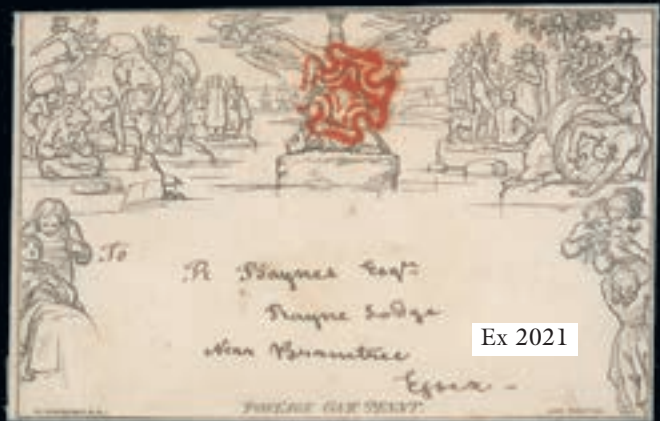 To
R Haynes Esqre
Rayne Lodge
Near Braintree
Essex -
Ex 2021
POSTAGE ONE PENNY.